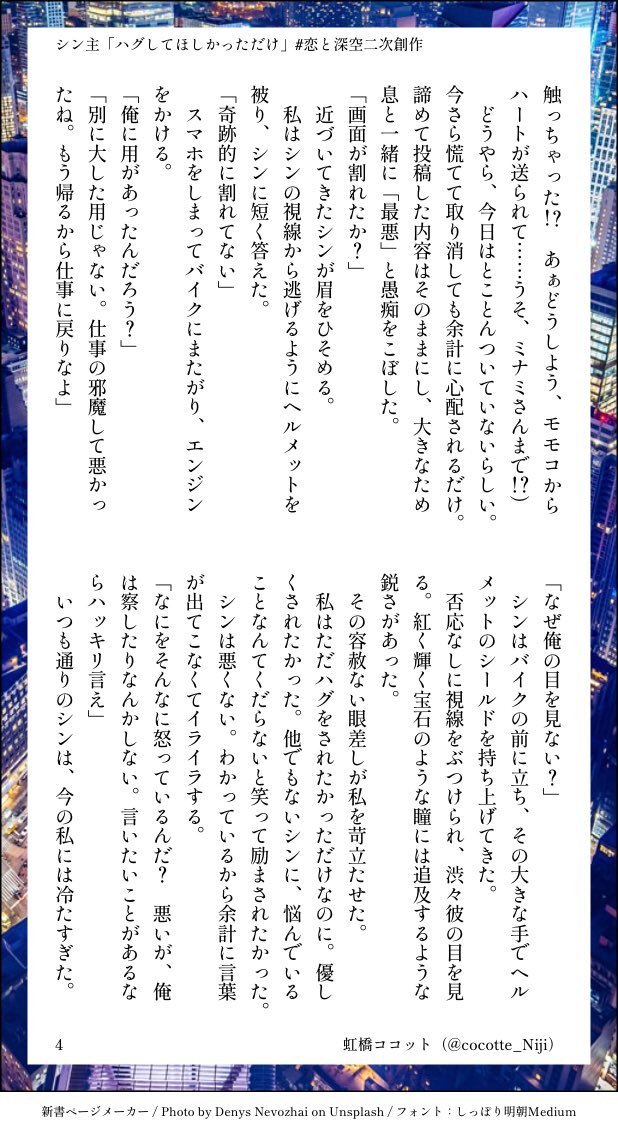 シン主「ハグしてほしかっただけ」#恋と深空二次創作
触っちゃった!?　あぁどうしよう、モモコから
ハートが送られて……うそ、ミナミさんまで!?）
　どうやら、今日はとことんついていないらしい。
今さら慌てて取り消しても余計に心配されるだけ。
諦めて投稿した内容はそのままにし、大きなため
息と一緒に「最悪」と愚痴をこぼした。
「画面が割れたか？」
　近づいてきたシンが眉をひそめる。
　私はシンの視線から逃げるようにヘルメットを
被り、シンに短く答えた。
「奇跡的に割れてない」
　スマホをしまってバイクにまたがり、エンジン
をかける。
「俺に用があったんだろう？」
「別に大した用じゃない。仕事の邪魔して悪かっ
たね。もう帰るから仕事に戻りなよ」
「なぜ俺の目を見ない？」
　シンはバイクの前に立ち、その大きな手でヘル
メットのシールドを持ち上げてきた。
　否応なしに視線をぶつけられ、渋々彼の目を見
る。紅く輝く宝石のような瞳には追及するような
鋭さがあった。
　その容赦ない眼差しが私を苛立たせた。
　私はただハグをされたかっただけなのに。優し
くされたかった。他でもないシンに、悩んでいる
ことなんてくだらないと笑って励まされたかった。
　シンは悪くない。わかっているから余計に言葉
が出てこなくてイライラする。
「なにをそんなに怒っているんだ？　悪いが、俺
は察したりなんかしない。言いたいことがあるな
らハッキリ言え」
　いつも通りのシンは、今の私には冷たすぎた。
4
虹橋ココット（@cocotte_Niji）
新書ページメーカー / Photo by Denys Nevozhai on Unsplash / フォント：しっぽり明朝Medium